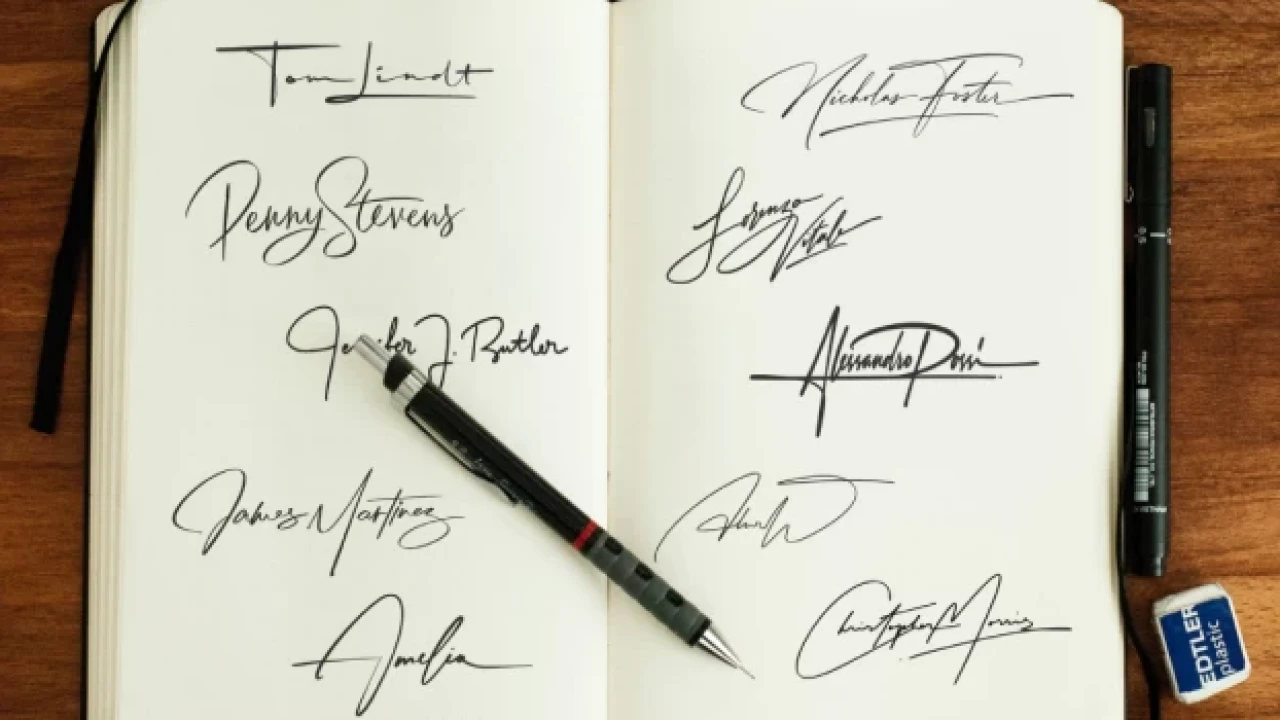 Tom Lindt
Penny Stevens
Jennifer J. Butler
James Martinez
Amelia
Nicholas Foster
Lorenzo
Vitale
Alessandro Rossi
Christopher Morris
EDTLER
plastic